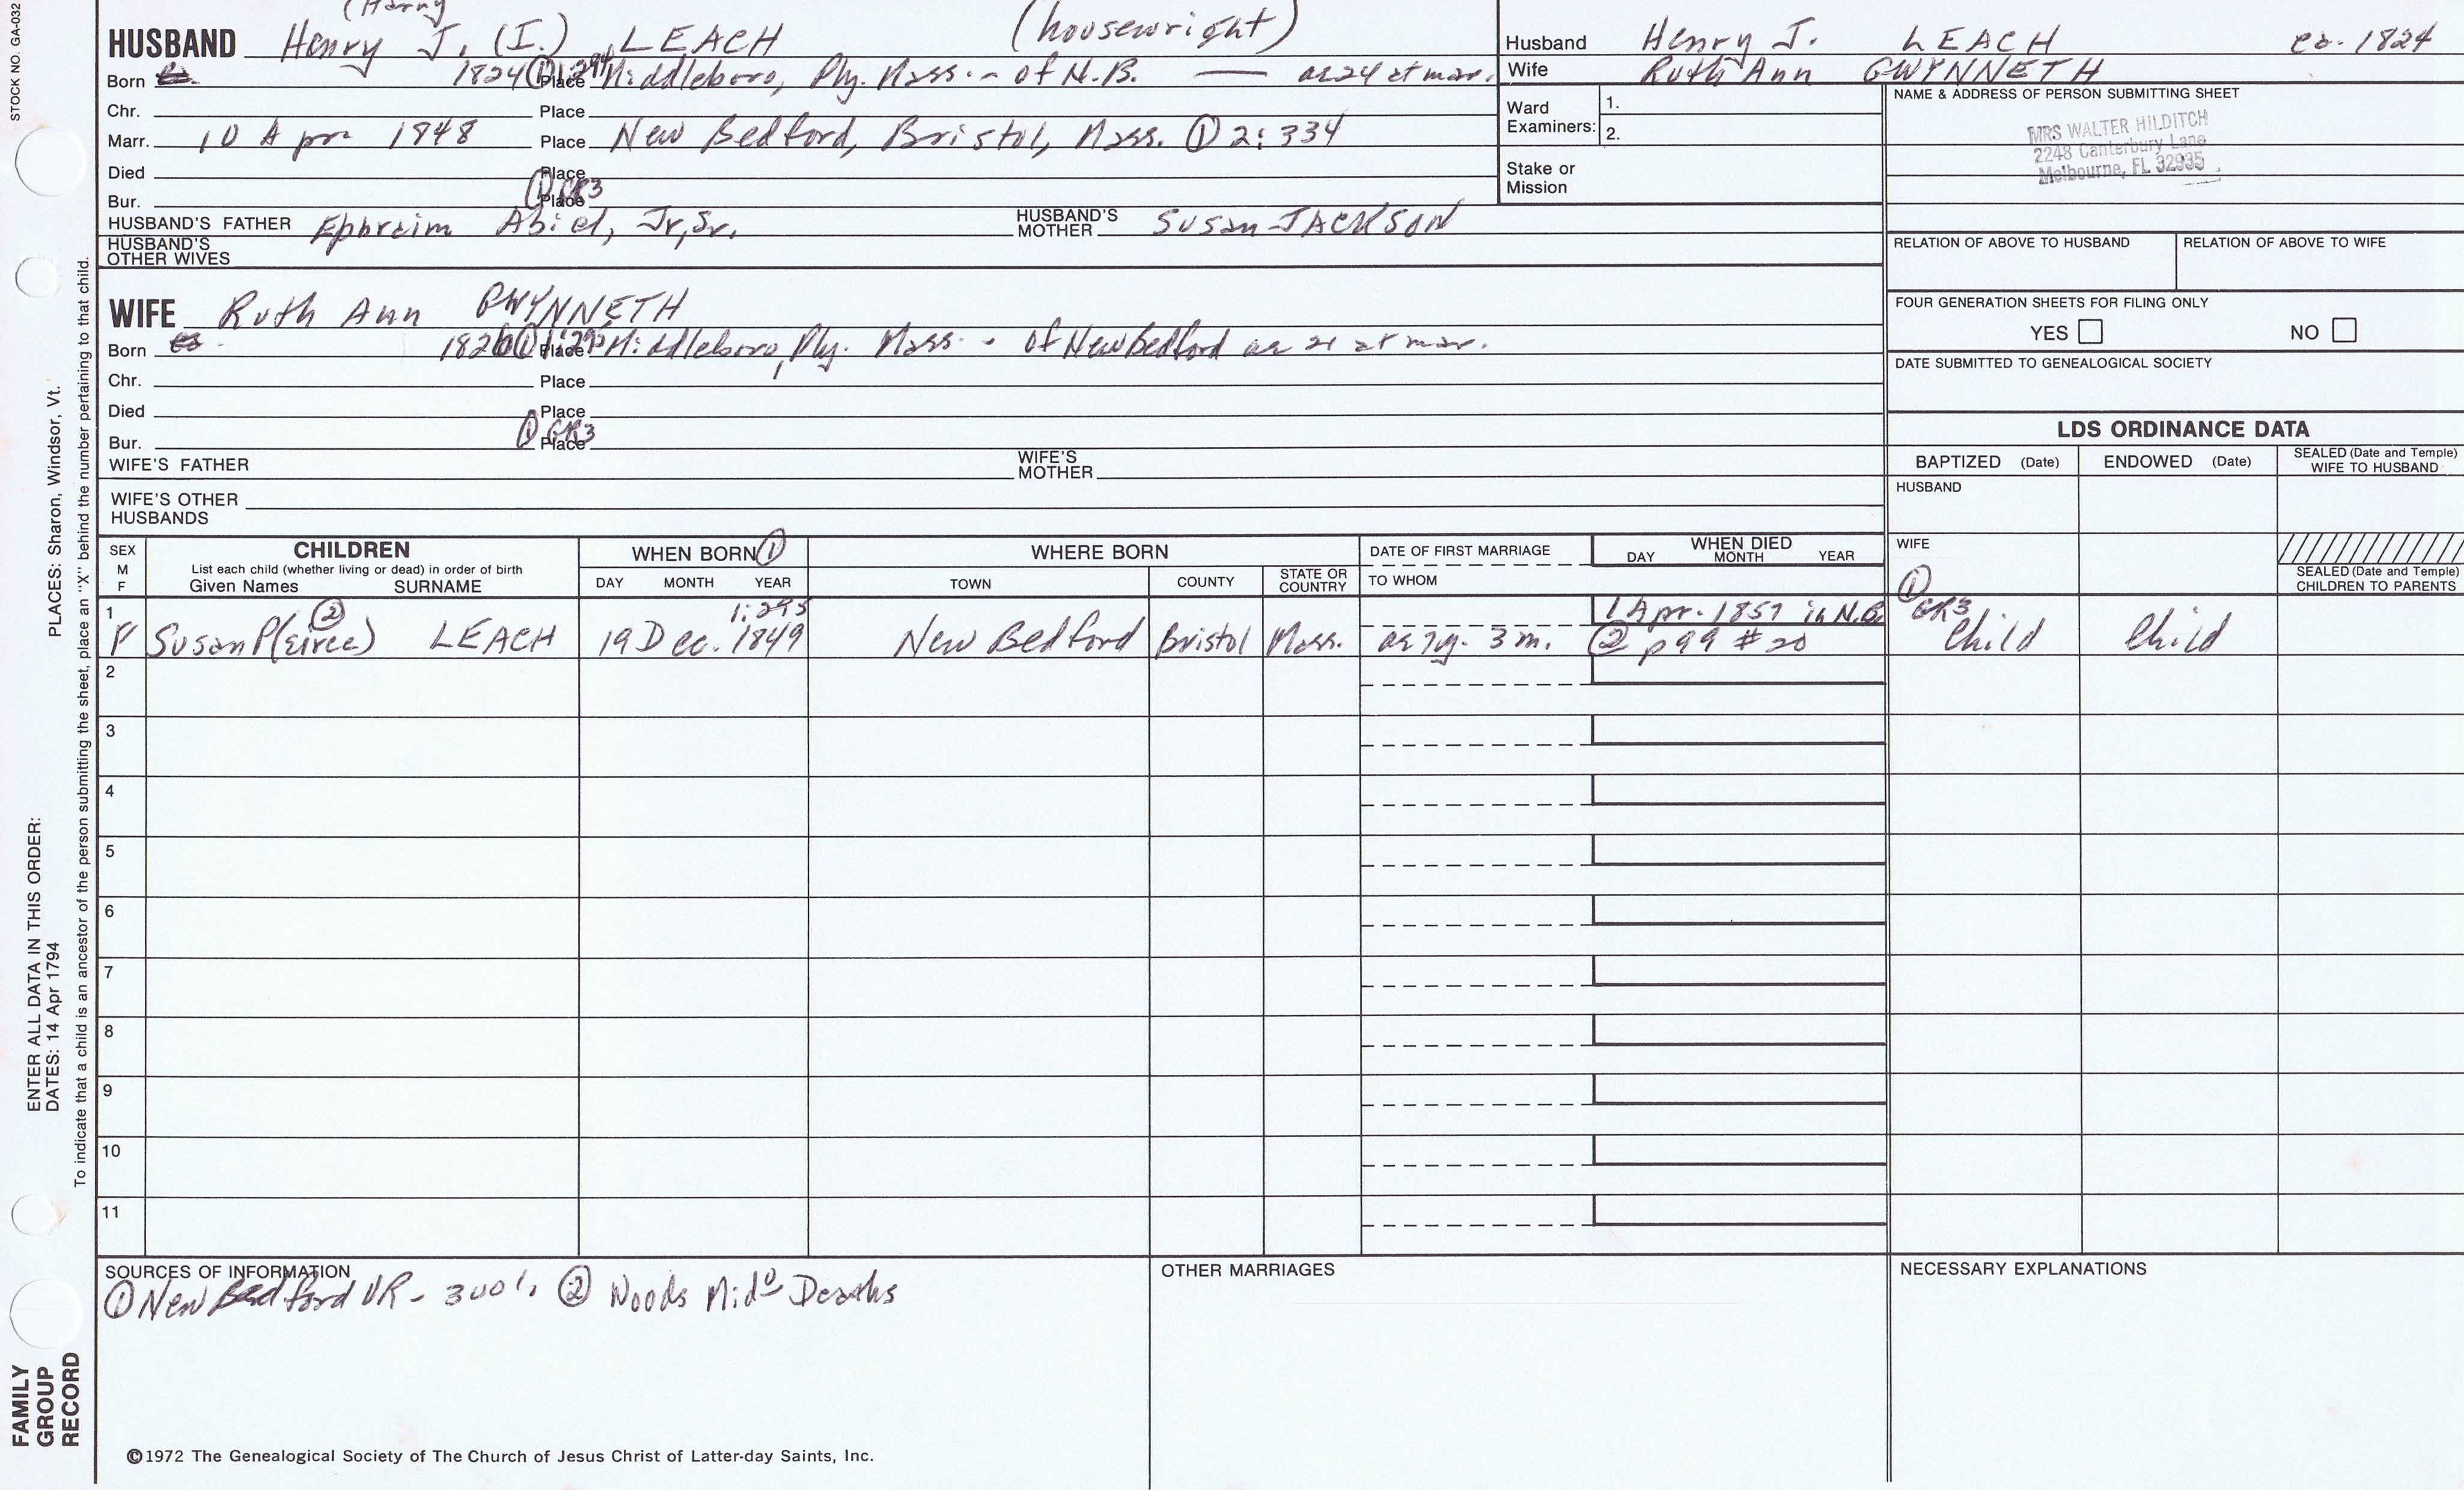 STOCK NO. GA-032
(Harry
HUSBAND Henry J. (I.) LEACH (housewright)
Born 1824 ① 1:294 Place Middleboro, Ply. Mass. - of N.B. — ae 24 at mar.
Chr. Place
Marr. 10 Apr 1848 Place New Bedford, Bristol, Mass. ① 2:334
Died Place
Bur. Place ① GR3
HUSBAND'S FATHER Ephraim Abiel, Jr, Sr. HUSBAND'S MOTHER Susan JACKSON
HUSBAND'S OTHER WIVES
Husband Henry J. LEACH ca. 1824
Wife Ruth Ann GWYNNETH
Ward Examiners: 1.
2.
Stake or Mission
NAME & ADDRESS OF PERSON SUBMITTING SHEET
MRS WALTER HILDITCH
2248 Canterbury Lane
Melbourne, FL 32935
RELATION OF ABOVE TO HUSBAND RELATION OF ABOVE TO WIFE
FOUR GENERATION SHEETS FOR FILING ONLY
YES NO
DATE SUBMITTED TO GENEALOGICAL SOCIETY
WIFE Ruth Ann GWYNNETH
Born 1826 ① 1:295 Place Middleboro, Ply. Mass. - of New Bedford ae 21 at mar.
Chr. Place
Died Place
Bur. Place ① GR3
WIFE'S FATHER WIFE'S MOTHER
WIFE'S OTHER HUSBANDS
LDS ORDINANCE DATA
BAPTIZED (Date) ENDOWED (Date) SEALED (Date and Temple) WIFE TO HUSBAND
HUSBAND
WIFE
SEALED (Date and Temple) CHILDREN TO PARENTS
SEX M F
CHILDREN
List each child (whether living or dead) in order of birth
Given Names SURNAME
WHEN BORN ①
DAY MONTH YEAR
WHERE BORN
TOWN COUNTY STATE OR COUNTRY
DATE OF FIRST MARRIAGE
TO WHOM
WHEN DIED
DAY MONTH YEAR
② 1:295 1 Apr. 1857 in N.B. ① GR3
1 F Susan P(eirce) LEACH 19 Dec. 1849 New Bedford Bristol Mass. ae 7y. 3 m. ② p99 #20 Child Child
2
3
4
5
6
7
8
9
10
11
SOURCES OF INFORMATION
① New Bedford VR - ② Woods Mid° Deaths
OTHER MARRIAGES
NECESSARY EXPLANATIONS
©1972 The Genealogical Society of The Church of Jesus Christ of Latter-day Saints, Inc.
PLACES: Sharon, Windsor, Vt.
ENTER ALL DATA IN THIS ORDER:
DATES: 14 Apr 1794
To indicate that a child is an ancestor of the person submitting the sheet, place an "X" behind the number pertaining to that child.
FAMILY
GROUP
RECORD